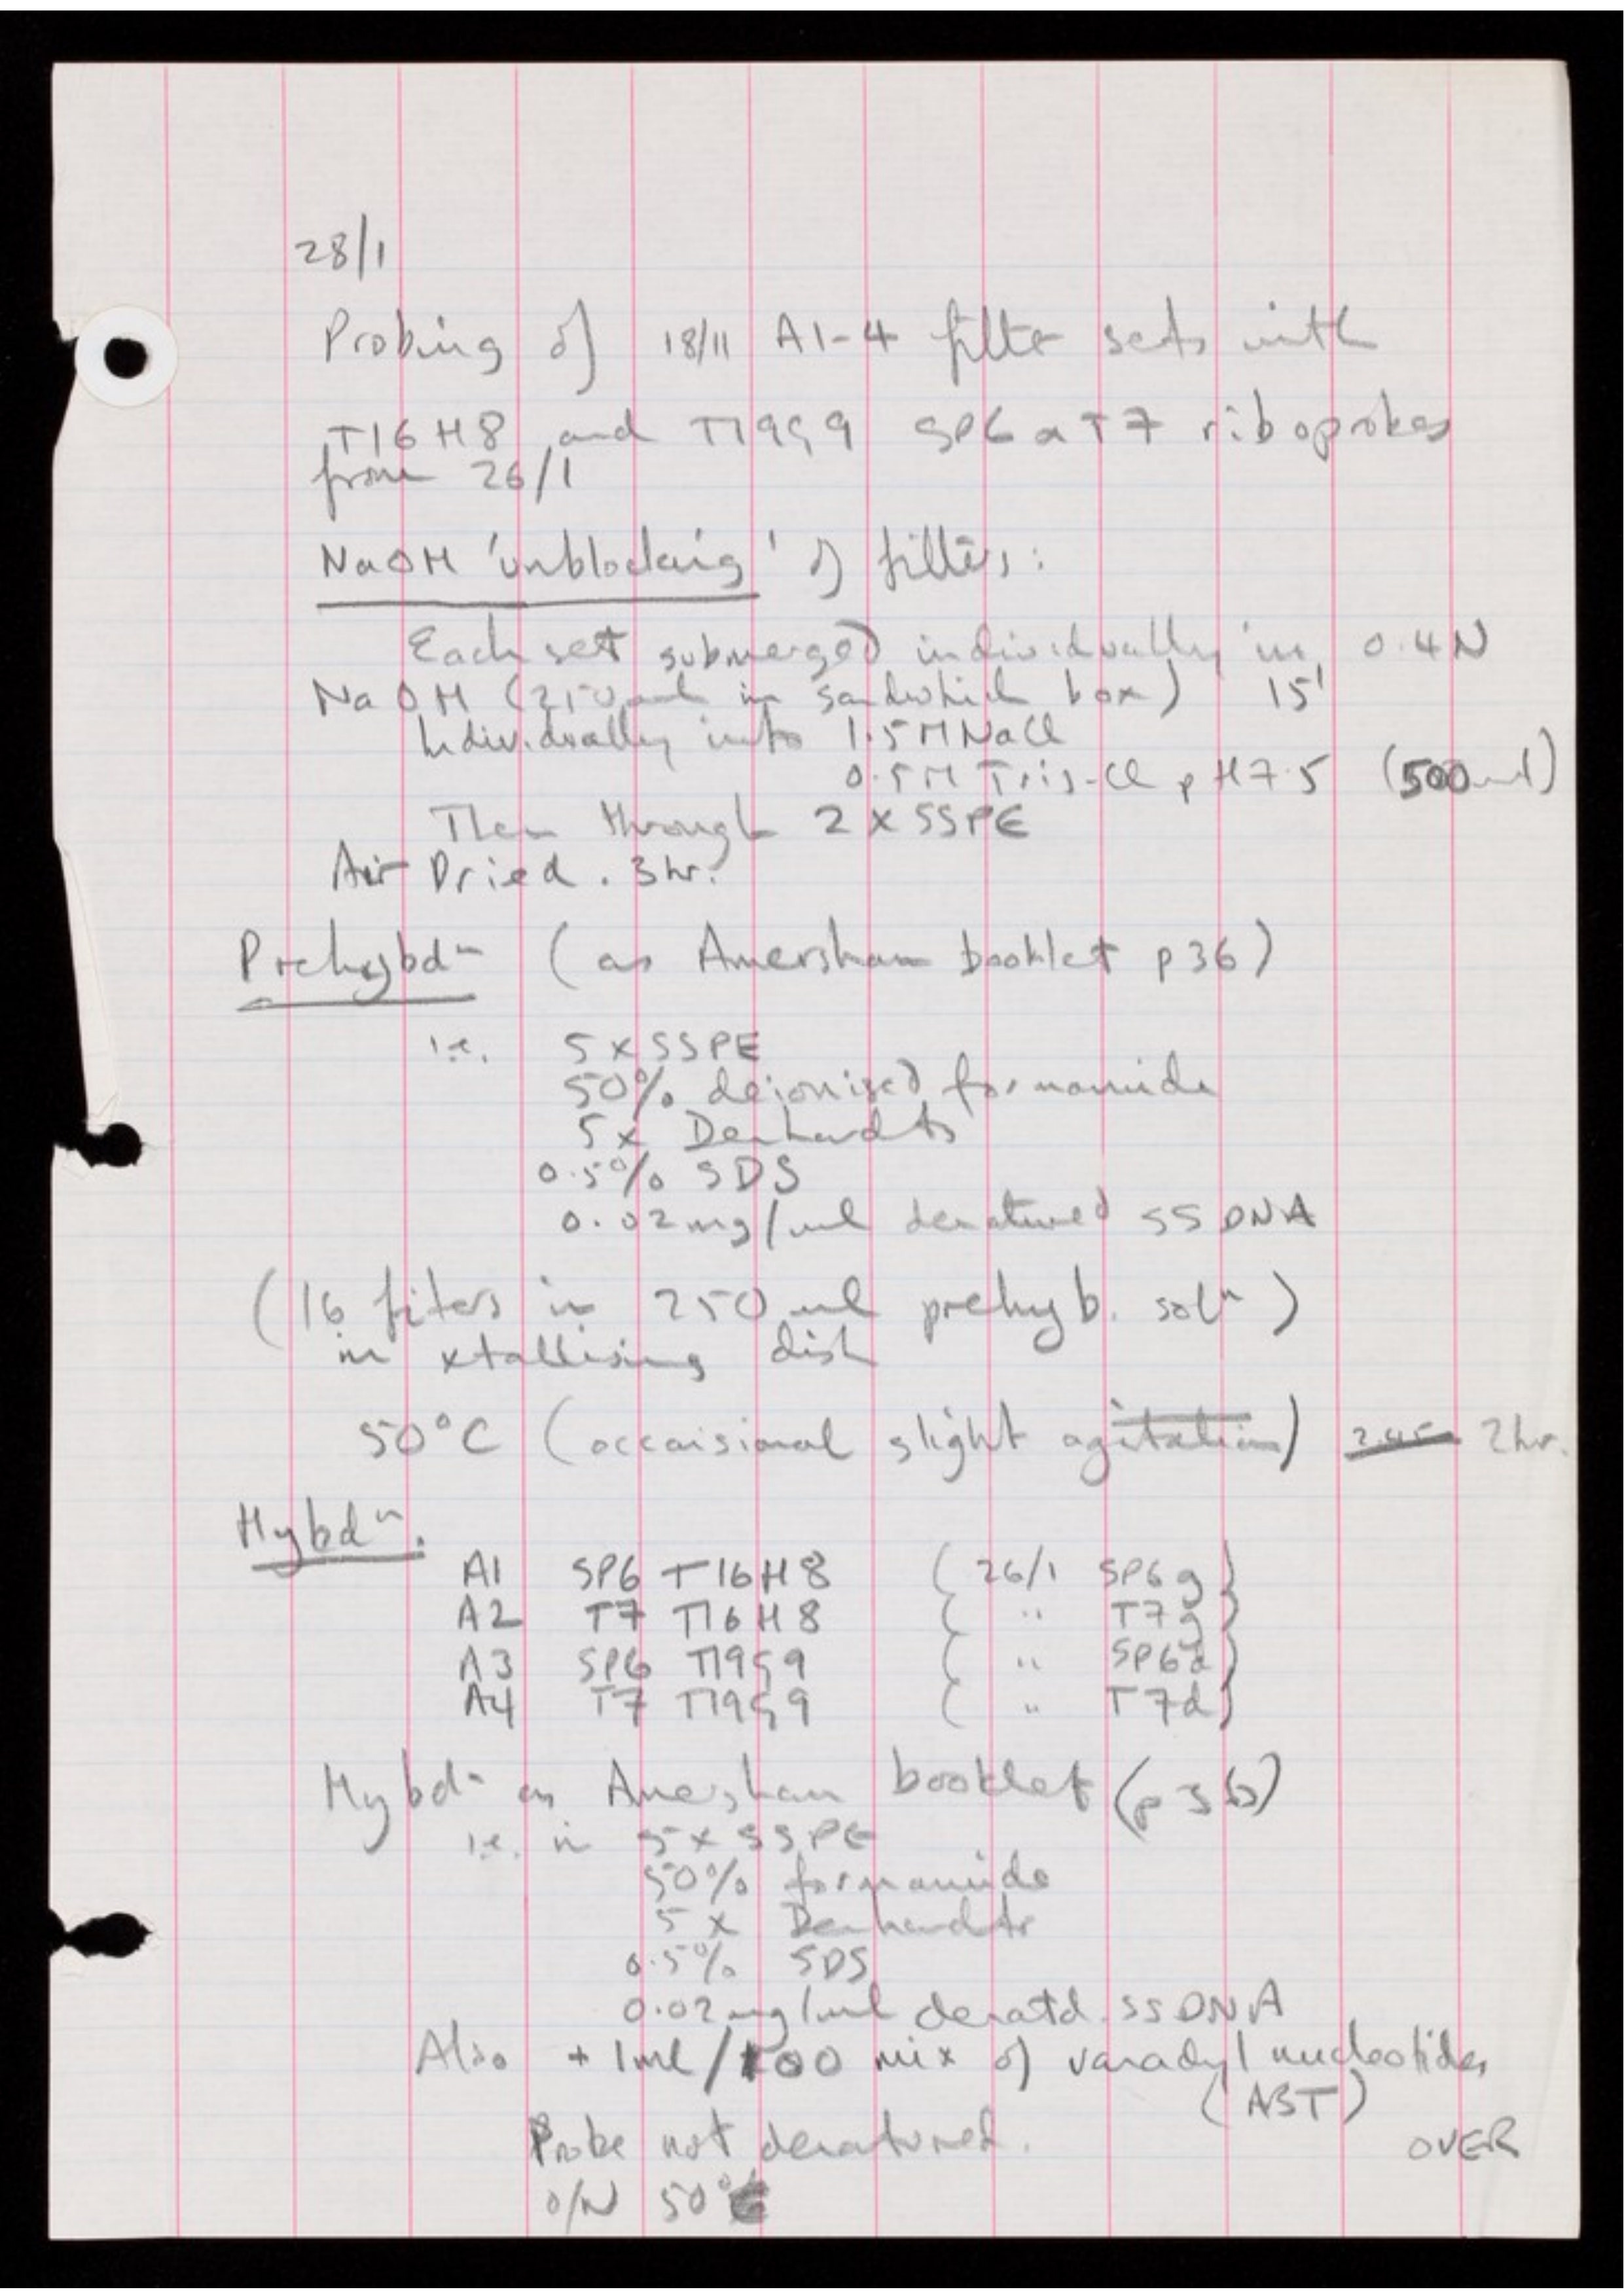 28/1
Probing of 18/11 A1-4 filter sets with
T16H8 and T19G9 SP6 & T7 riboprobes
from 26/1
NaOH 'unblocking' of filters:
Each set submerged individually in 0.4N
NaOH (250ml in sandwhich box) 15'
Individually into 1.5M NaCl
0.5M Tris-Cl pH7.5 (500ml)
Then through 2 x SSPE
Air Dried. 3hr.
Prehybdn (as Amersham booklet p36)
i.e. 5 x SSPE
50% deionised formamide
5x Denhardts
0.5% SDS
0.02mg/ml denatured SS DNA
(16 filters in 250ml prehyb. soln)
in xtallising dish
50°C (occaisional slight agitation) 2.45 2hr.
Hybdn.
A1 SP6 T16H8 (26/1 SP6g)
A2 T7 T16H8 ( " T7g)
A3 SP6 T19G9 ( " SP6d)
A4 T7 T19G9 ( " T7d)
Hybdn as Amersham booklet (p36)
i.e. in 5x SSPE
50% formamide
5 x Denhardts
0.5% SDS
0.02mg/ml denatd. SS DNA
Also + 1ml/100 mix of vanadyl nucleotides
(ABT)
Probe not denatured.
OVER
O/N 50°C